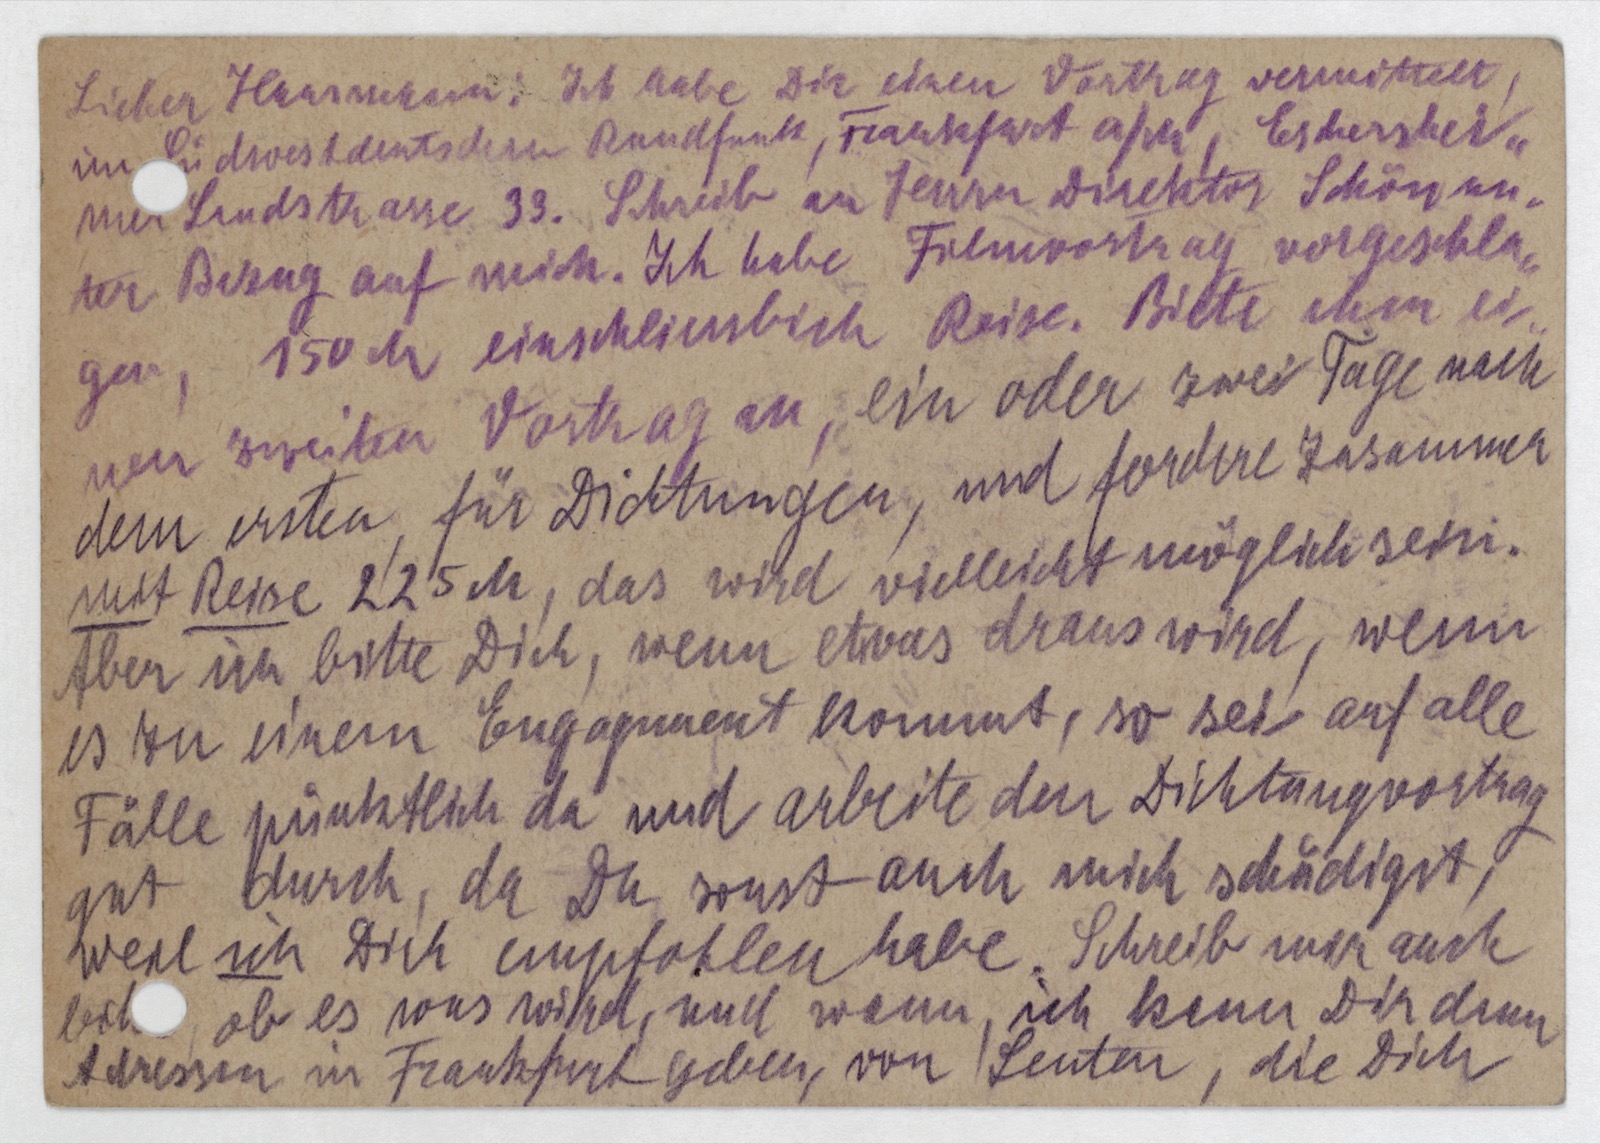 Lieber Hausmann! Ich habe Dir einen Vortrag vermittelt,
im Südwestdeutschen Rundfunk, Frankfurt a/M, Eschershei„
mer Landstrasse 33. Schreib an Herrn Direktor Schön un„
ter Bezug auf mich. Ich habe Filmvortrag vorgeschla„
gen, 150 M einschliesslich Reise. Biete ihm ei„
nen zweiten Vortrag an, ein oder zwei Tage nach
dem ersten, für Dichtungen, und fordere zusammen
mit Reise 225 M, das wird vielleicht möglich sein.
Aber ich bitte Dich, wenn etwas draus wird, wenn
es zu einem Engagement kommt, so sei auf alle
Fälle pünktlich da und arbeite den Dichtungvortrag
gut durch, da Du sonst auch mich schädigst,
weil ich Dich empfohlen habe. Schreib mir auch
, ob es was wird, und wann, ich kann Dir dann
Adressen in Frankfurt geben, von Leuten, die Dich